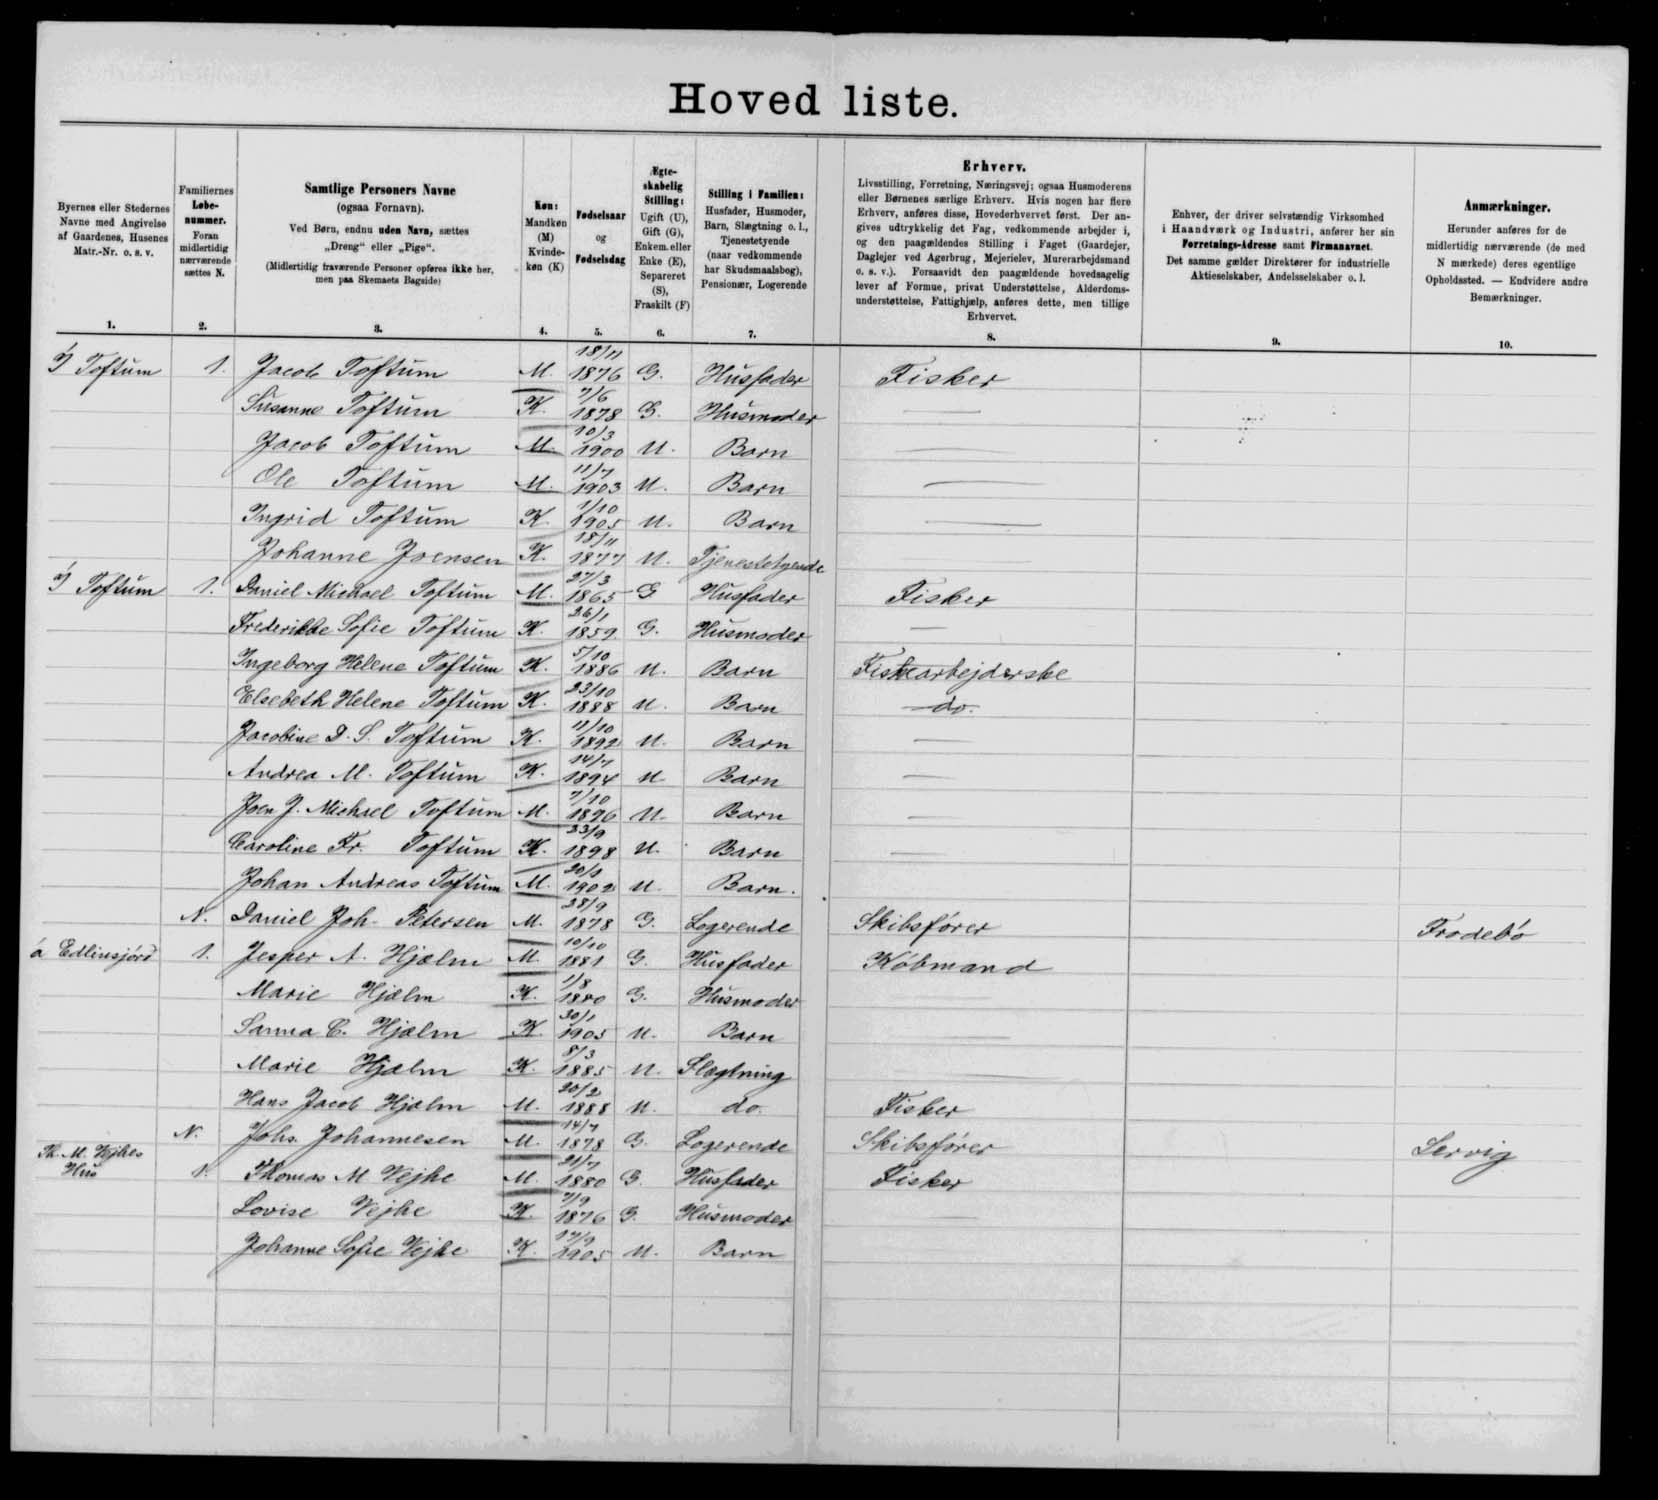 Hoved liste.
Byernes eller Stedernes Navne med Angivelse af Gaardenes, Husenes Matr.-Nr. o. s. v.
1.
Familiernes Løbenummer. Foran midlertidig nærværende sættes N.
2.
Samtlige Personers Navne (ogsaa Fornavn). Ved Børn, endnu uden Navn, sættes „Dreng“ eller „Pige“. (Midlertidig fraværende Personer opføres ikke her, men paa Skemaets Bagside)
3.
Køn: Mandkøn (M) Kvindekøn (K)
4.
Fødselsaar og Fødselsdag
5.
Ægteskabelig Stilling: Ugift (U), Gift (G), Enkem. eller Enke (E), Separeret (S), Fraskilt (F)
6.
Stilling i Familien: Husfader, Husmoder, Barn, Slægtning o. l., Tjenestetyende (naar vedkommende har Skudsmaalsbog), Pensionær, Logerende
7.
Erhverv. Livsstilling, Forretning, Næringsvej; ogsaa Husmoderens eller Børnenes særlige Erhverv. Hvis nogen har flere Erhverv, anføres disse, Hovederhvervet først. Der angives udtrykkelig det Fag, vedkommende arbejder i, og den paagældendes Stilling i Faget (Gaardejer, Daglejer ved Agerbrug, Mejerielev, Murerarbejdsmand o. s. v.). Forsaavidt den paagældende hovedsagelig lever af Formue, privat Understøttelse, Alderdomsunderstøttelse, Fattighjælp, anføres dette, men tillige Erhvervet.
8.
Enhver, der driver selvstændig Virksomhed i Haandværk og Industri, anfører her sin Forretnings-Adresse samt Firmanavnet. Det samme gælder Direktører for industrielle Aktieselskaber, Andelsselskaber o. l.
9.
Anmærkninger. Herunder anføres for de midlertidig nærværende (de med N mærkede) deres egentlige Opholdssted. — Endvidere andre Bemærkninger.
10.
Í Toftum 1. Jacob Toftum M. 18/11 1876 G. Husfader Fisker
Susanne Toftum K. 7/6 1878 G. Husmoder —
Jacob Toftum M. 10/3 1900 U. Barn —
Ole Toftum M. 11/7 1903 U. Barn —
Ingrid Toftum K. 1/10 1905 U. Barn —
Johanne Joensen K. 18/11 1877 U. Tjenestetyende
Í Toftum 1. Daniel Michael Toftum M. 27/3 1865 G Husfader Fisker
Frederikke Sofie Toftum K. 26/1 1859 G. Husmoder —
Ingeborg Helene Toftum K. 5/10 1886 U. Barn Fiskearbejderske
Elsebeth Helene Toftum K. 23/10 1888 U. Barn do.
Jacobine D. S. Toftum K. 11/10 1892 U. Barn —
Andrea M. Toftum K. 14/7 1894 U Barn —
Joen J. Michael Toftum M. 7/10 1896 U. Barn —
Caroline Fr. Toftum K. 23/9 1898 U. Barn —
Johan Andreas Toftum M. 1902 U. Barn.
N. Daniel Joh. Petersen M. 28/9 1878 G. Logerende Skibsfører Frodebø
á 1. Jesper A. Hjælm M. 10/10 1881 G. Husfader Købmand
Marie Hjælm K. 1/8 1880 G. Husmoder
Sanna C. Hjælm K 30/1 1905 U. Barn
Marie Hjælm K. 8/3 1885 U. Slægtning
Hans Jacob Hjælm M. 20/2 1888 U. do. Fisker
N. Johs. Johannesen M. 14/7 1878 G. Logerende Skibsfører Lervig
Th. M. Vejhes Hus 1. Thomas M Vejhe M. 21/7 1880 G. Husfader Fisker
Lovise Vejhe K. 7/9 1876 G. Husmoder —
Johanne Sofie Vejhe K. 17/9 1905 U. Barn